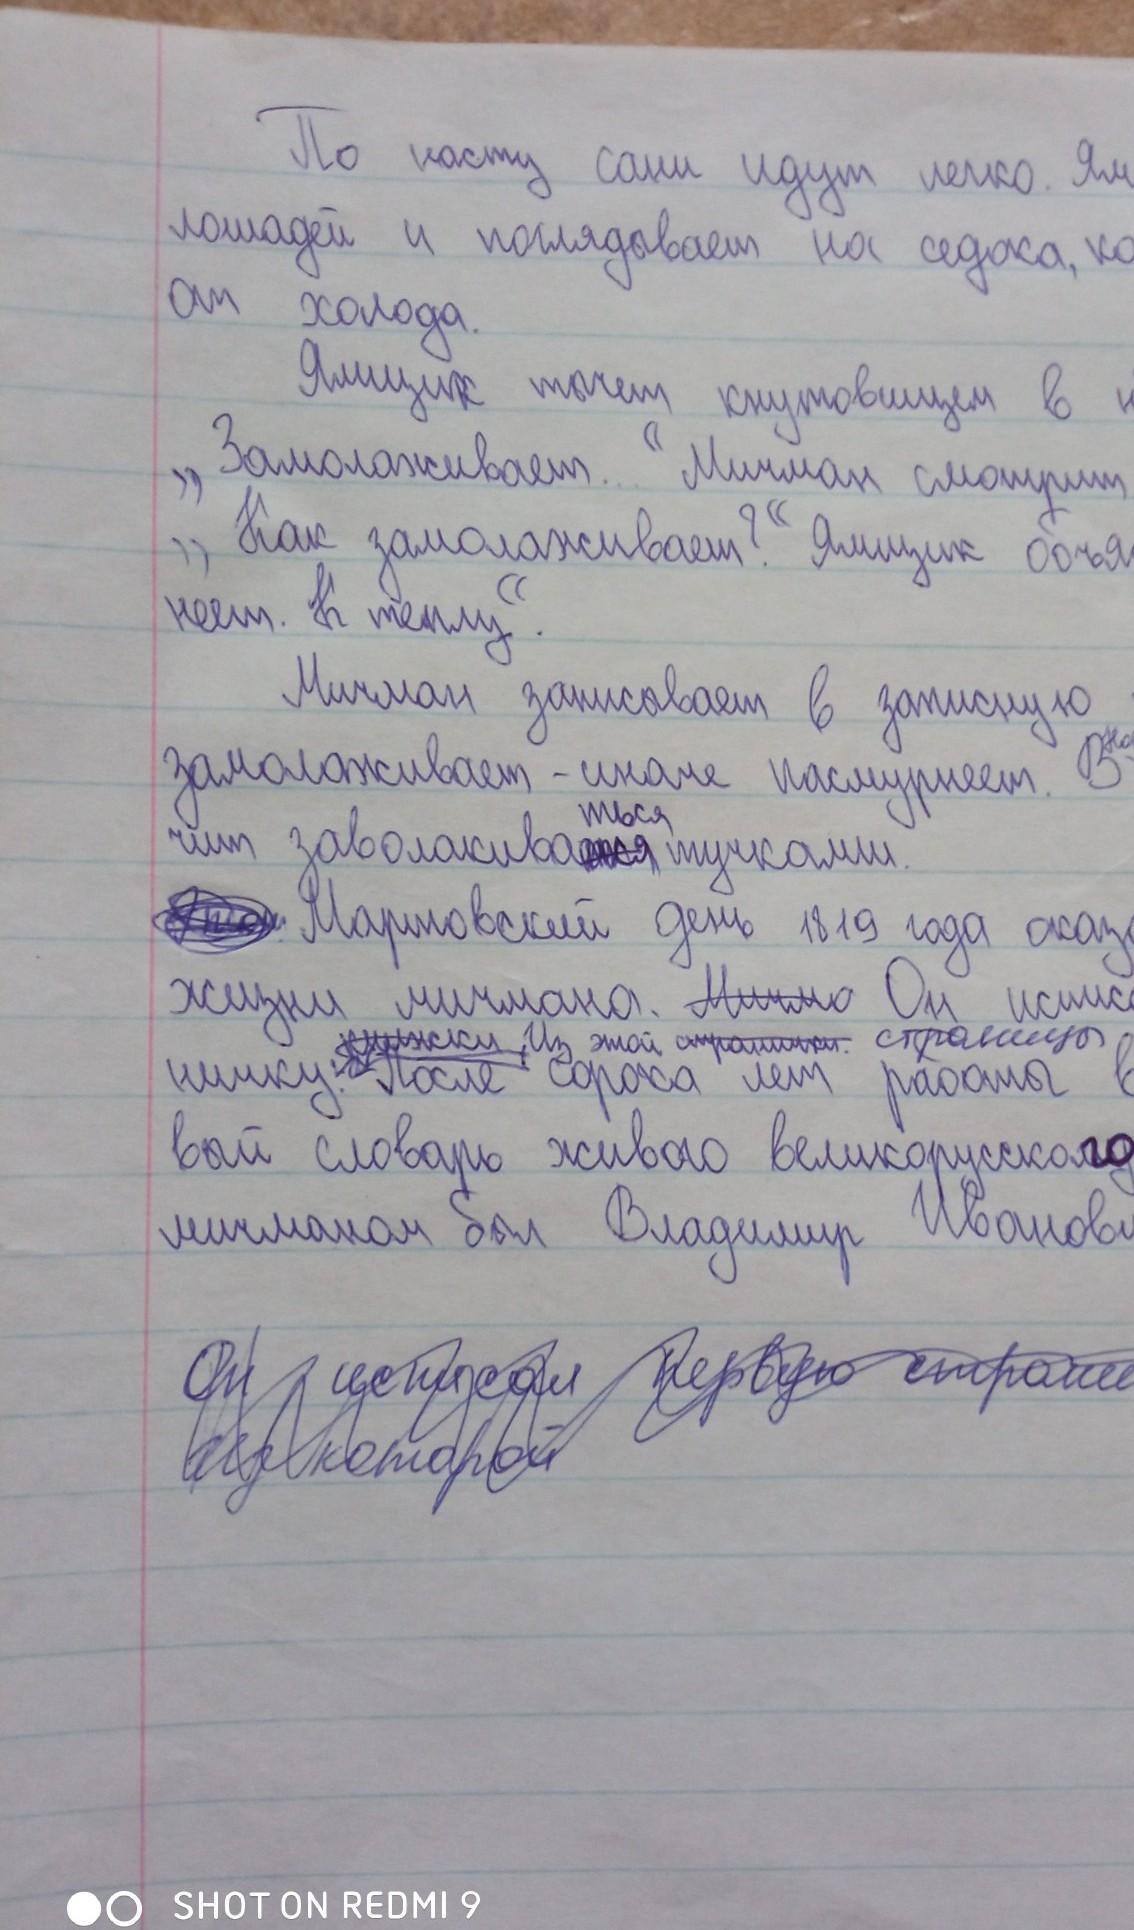 По насту сани идут легко. Ям
лошадей и поглядывает на седока, ко
от холода.
Ямщик тычет кнутовищем в н
„Замолаживает..." Мичман смотрит
„Как замолаживает?" Ямщик объя
неет. К теплу".
Мичман записывает в записную
замолаживает - иначе пасмурнеет. В
ться
чит заволакива тучками.
Мартовский день 1819 года оказа
жизни мичмана. Мичма Он исписа
книжки. Из этой странички. страницы
ничку: После сорока лет работы в
вый словарь живого великорусского
мичманом был Владимир Иванови
Он исписал первую страни
из которой
SHOT ON REDMI 9